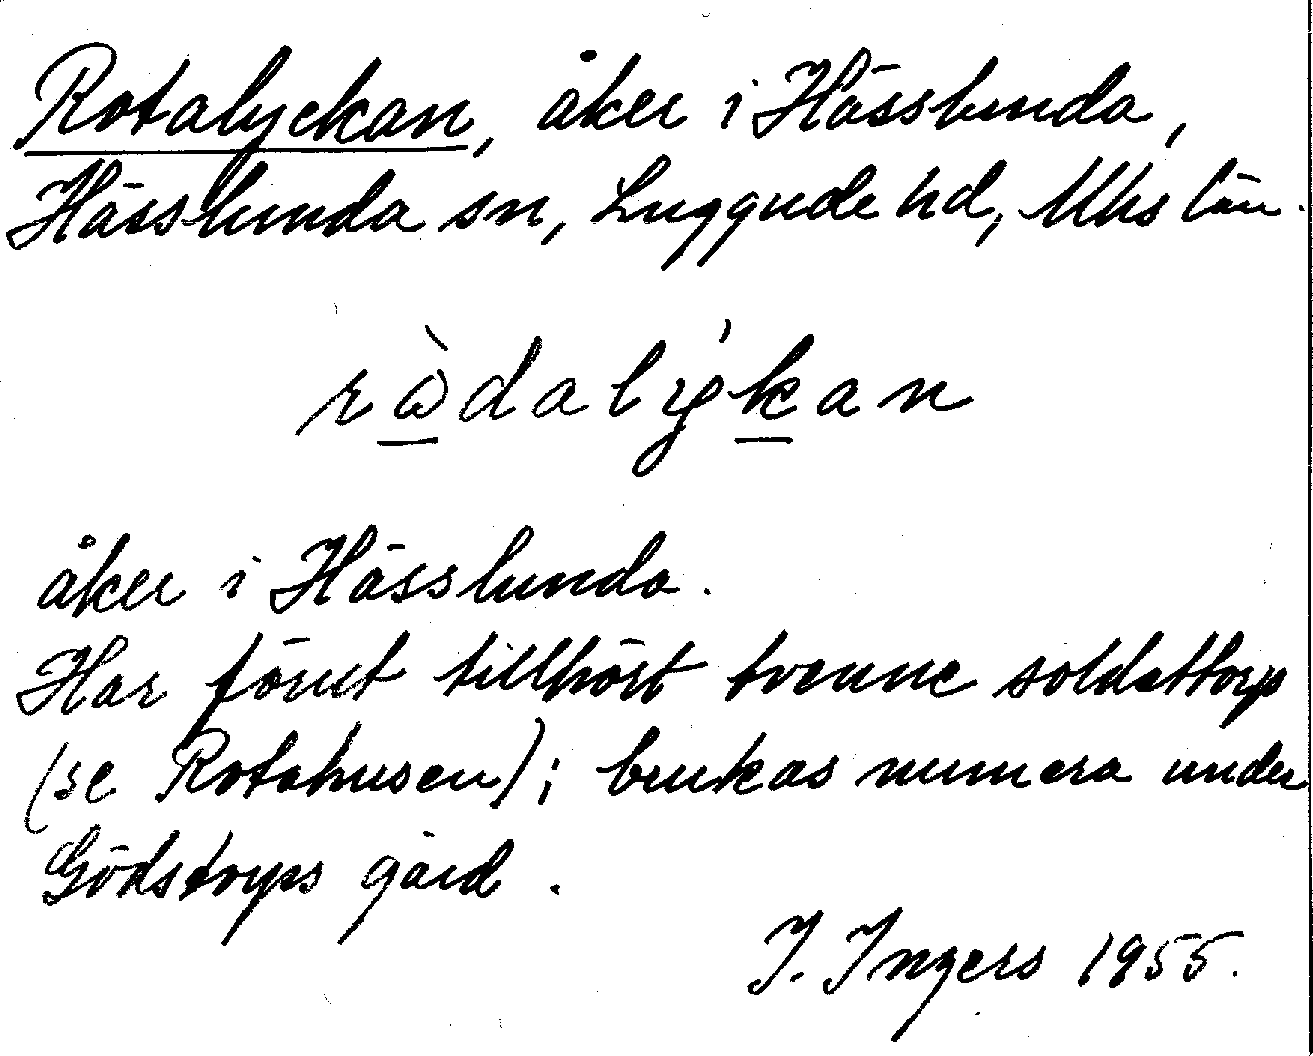 Rotalyckan, åker i Hässlunda,
Hässlunda sn, Luggude hd, Mhs län.
rὰdalýkan
åker i Hässlunda.
Har förut tillhört tvenne soldattorp
(se Rotahusen); brukas numera under
Gödstorps gård.
I. Ingers 1955.